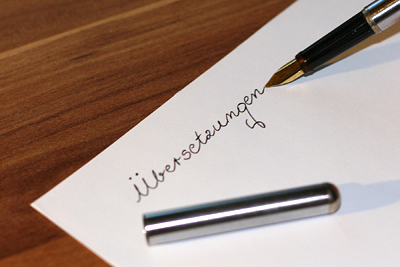 Übersetzungen